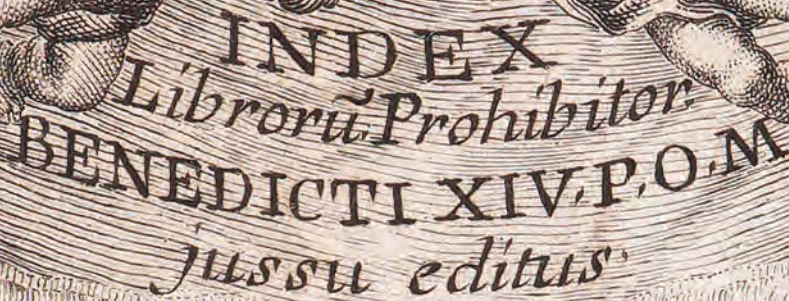 INDEX
Librorũ Prohibitor.
BENEDICTI XIV. P. O. M
jussu editus.